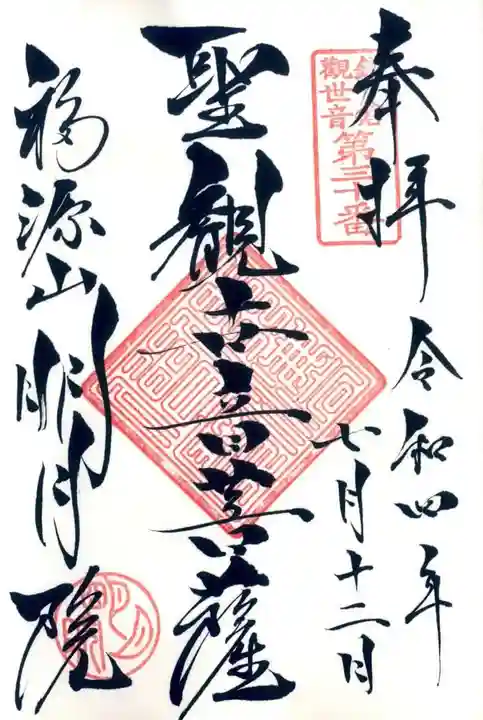 奉拝
令和四年
七月十二日
観世音第三十番
聖観世音菩薩
福源山明月院